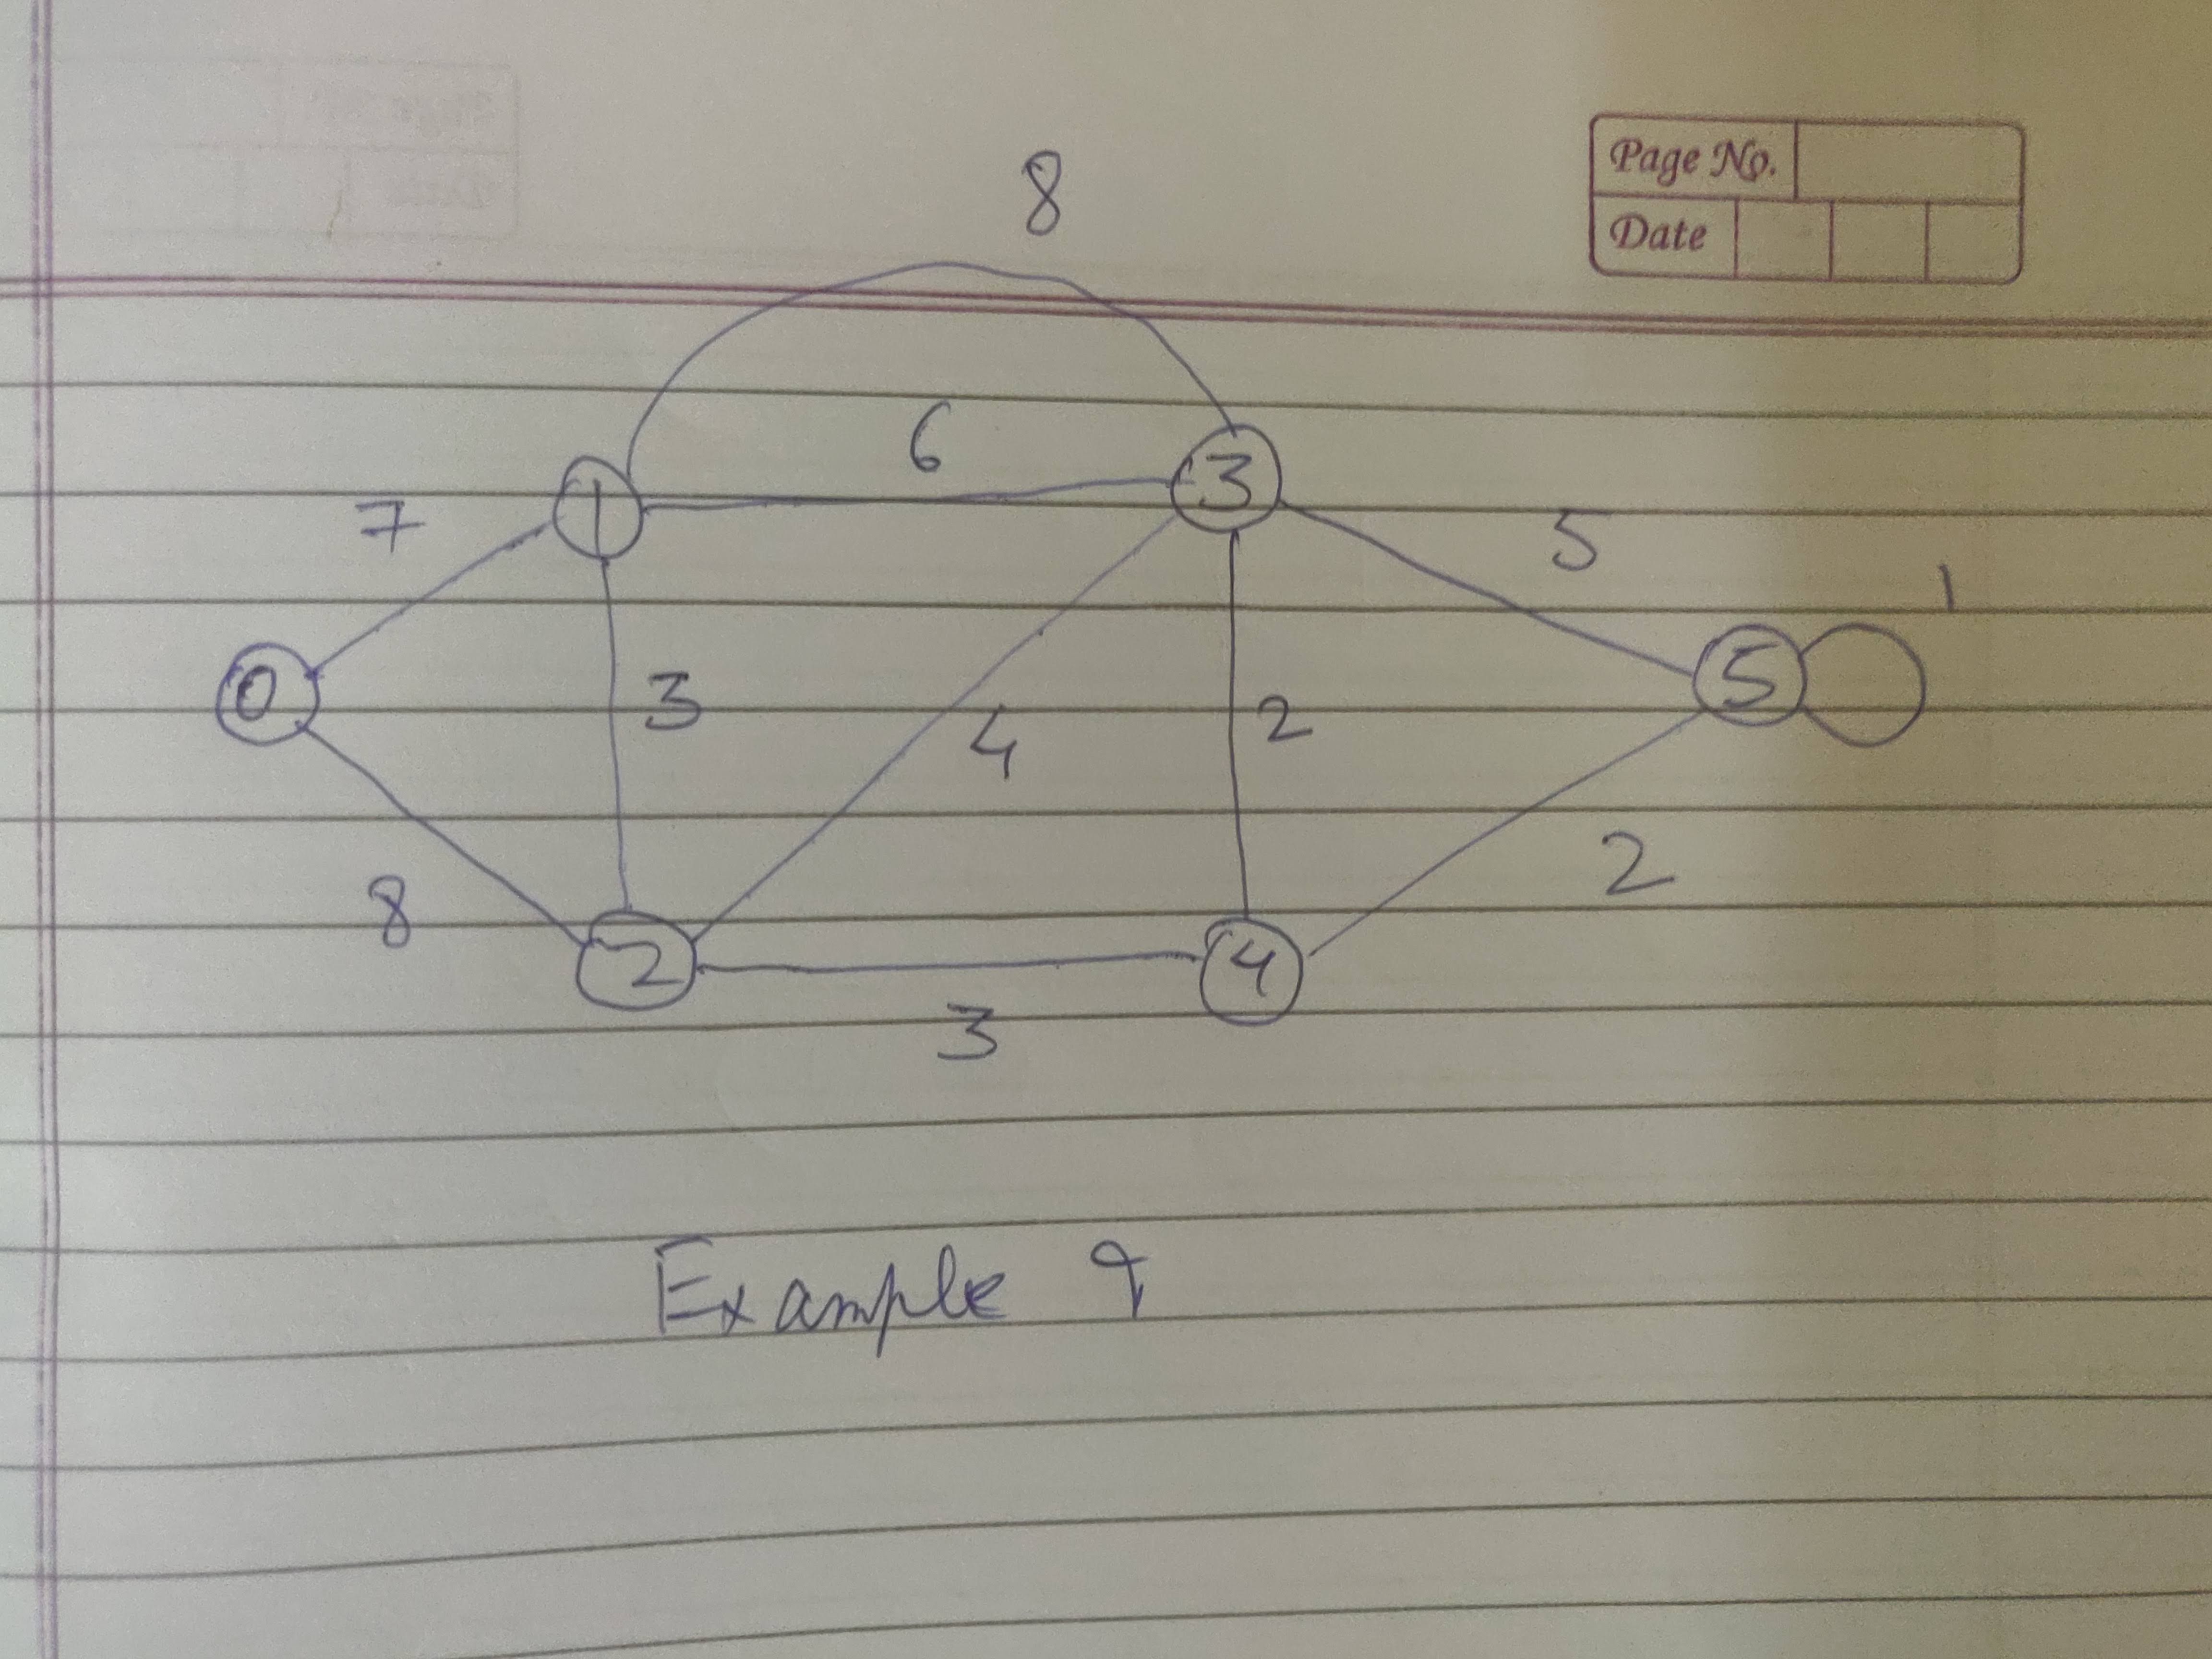 Page No.
Date
8
6
7
1
3
5
1
0
3
4
2
5
8
2
4
2
3
Example 9